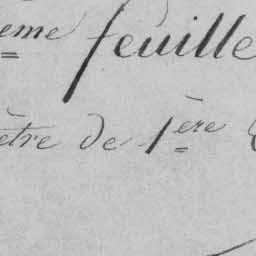 eme feuille
être de 1ère